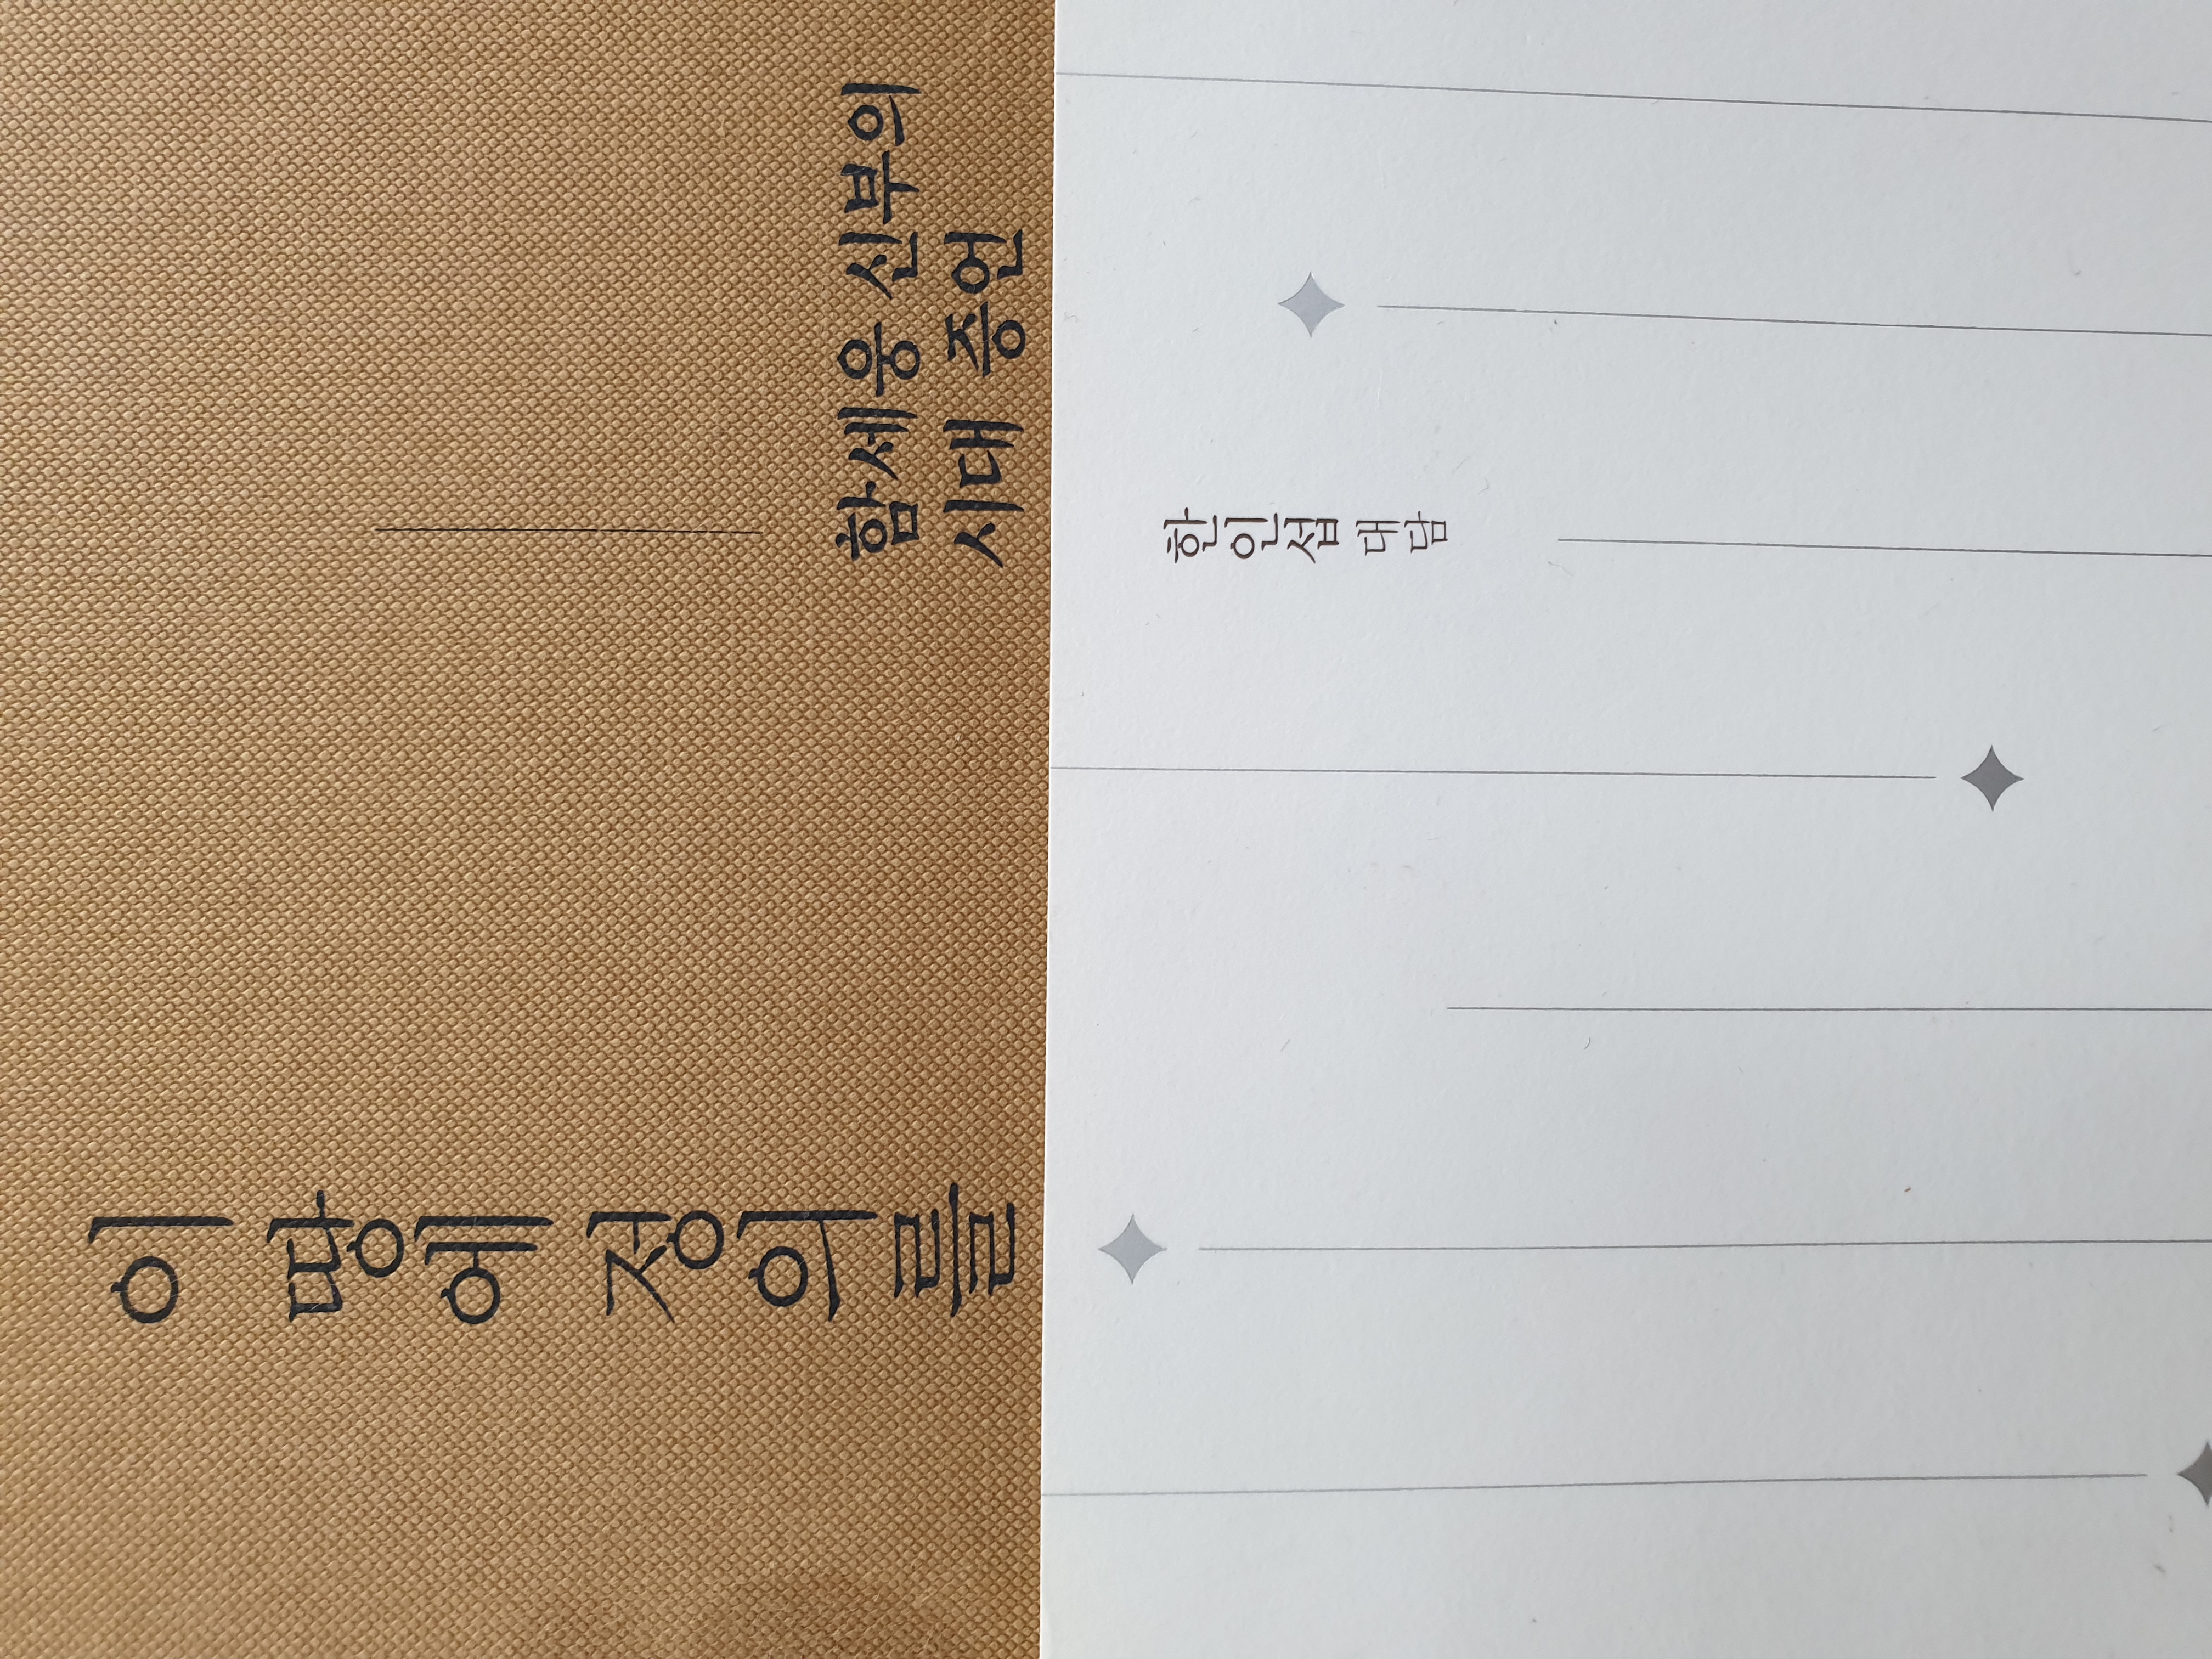 이 땅에 정의를
함세웅 신부의
시대 증언
한인섭 대담